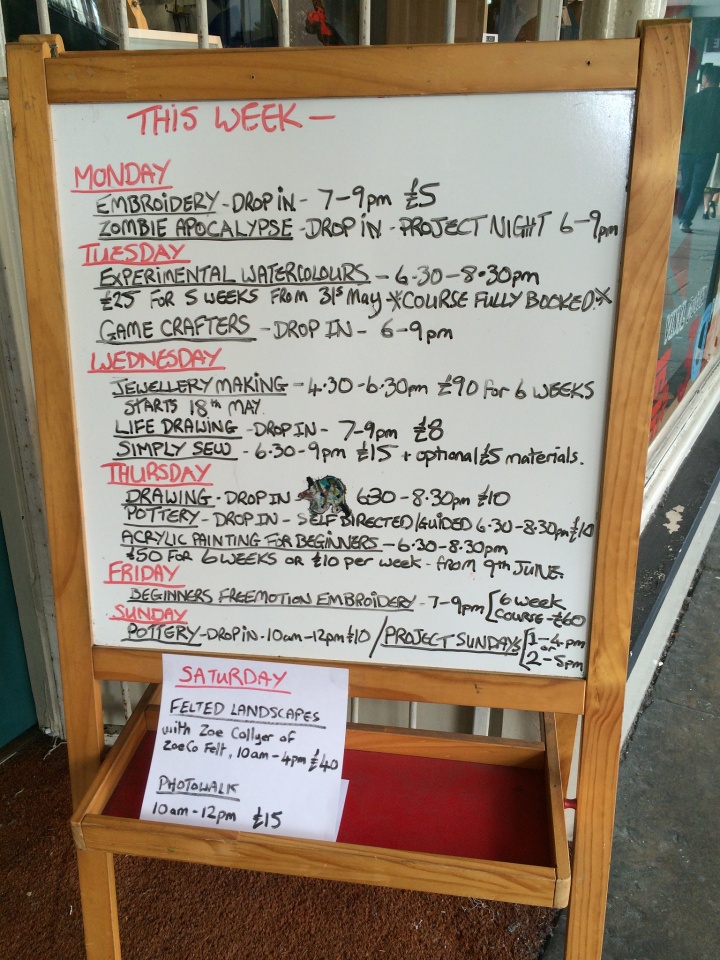 THIS WEEK —
MONDAY
EMBROIDERY - DROP IN - 7-9pm £5
ZOMBIE APOCALYPSE - DROP IN - PROJECT NIGHT 6-9pm
TUESDAY
EXPERIMENTAL WATERCOLOURS - 6.30-8.30pm
£25 FOR 5 WEEKS FROM 31st May *COURSE FULLY BOOKED.*
GAME CRAFTERS - DROP IN - 6-9pm
WEDNESDAY
JEWELLERY MAKING - 4.30-6.30pm £90 for 6 WEEKS
STARTS 18th MAY.
LIFE DRAWING - DROP IN - 7-9pm £8
SIMPLY SEW - 6.30-9pm £15 + optional £5 materials.
THURSDAY
DRAWING - DROP IN 630-8.30pm £10
POTTERY - DROP IN - SELF DIRECTED/GUIDED 6.30-8.30pm £10
ACRYLIC PAINTING FOR BEGINNERS - 6.30-8.30pm
£50 FOR 6 WEEKS OR £10 per week - from 9th JUNE.
FRIDAY
BEGINNERS FREEMOTION EMBROIDERY - 7-9pm [6 week
COURSE - £60
SUNDAY
POTTERY - DROP IN. 10am-12pm £10 / PROJECT SUNDAYS [1-4pm
or
2-5pm
SATURDAY
FELTED LANDSCAPES
with Zoe Collyer of
ZoeCo Felt, 10am-4pm £40
PHOTOWALK
10am-12pm £15